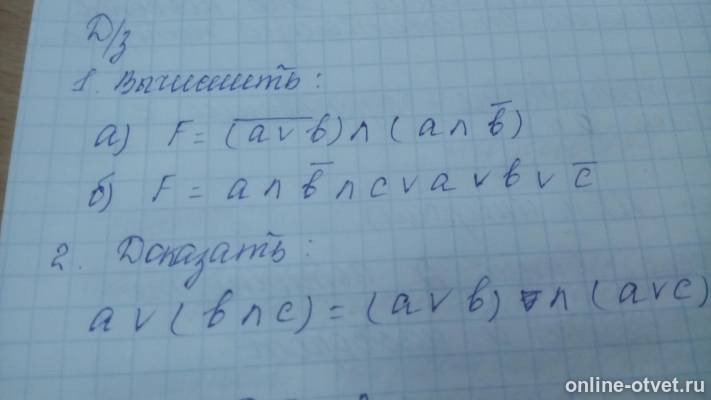 Д/з
1. Вычислить:
а) F = (a̅ ̅v̅ ̅b̅) ∧ (a ∧ b̅)
б) F = a ∧ b̅ ∧ c v a v b v c̅
2. Доказать:
a v (b ∧ c) = (a v b) ∧ (a v c)
online-otvet.ru